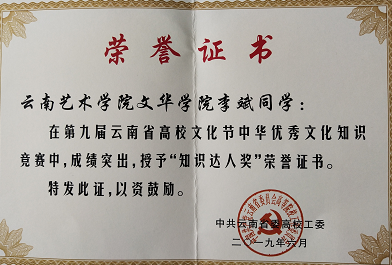 荣誉证书
云南艺术学院文华学院李斌同学：
在第九届云南省高校文化节中华优秀文化知识
竞赛中，成绩突出，授予“知识达人奖”荣誉证书。
特发此证，以资鼓励。
中共云南省委高校工委
二〇一九年六月